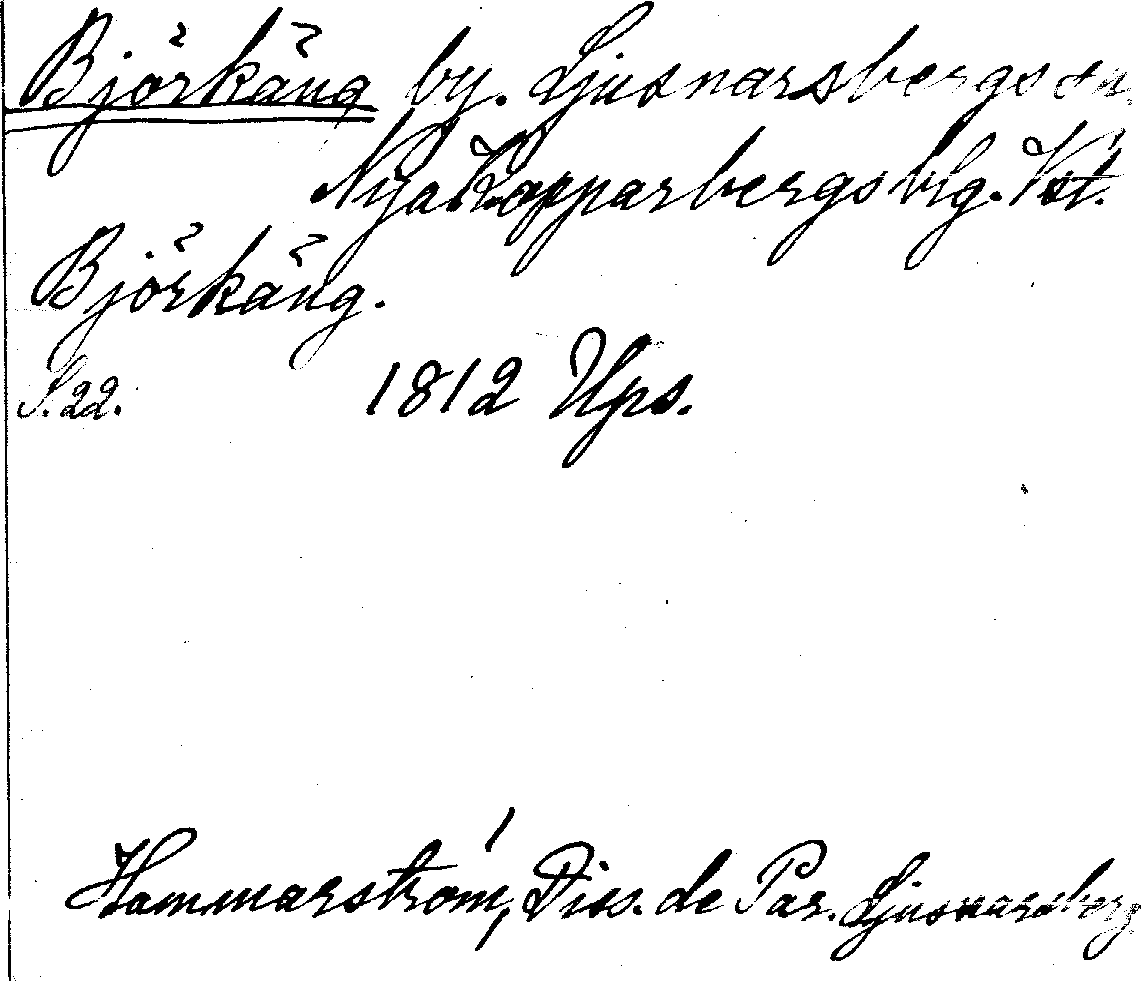 Björkäng by. Ljusnarsbergs sn.
Nya Kopparbergs blg. Vst.
Björkäng.
S. 22. 1812 Ups.
Hammarström, Diss. de Par. Ljusnarsberg